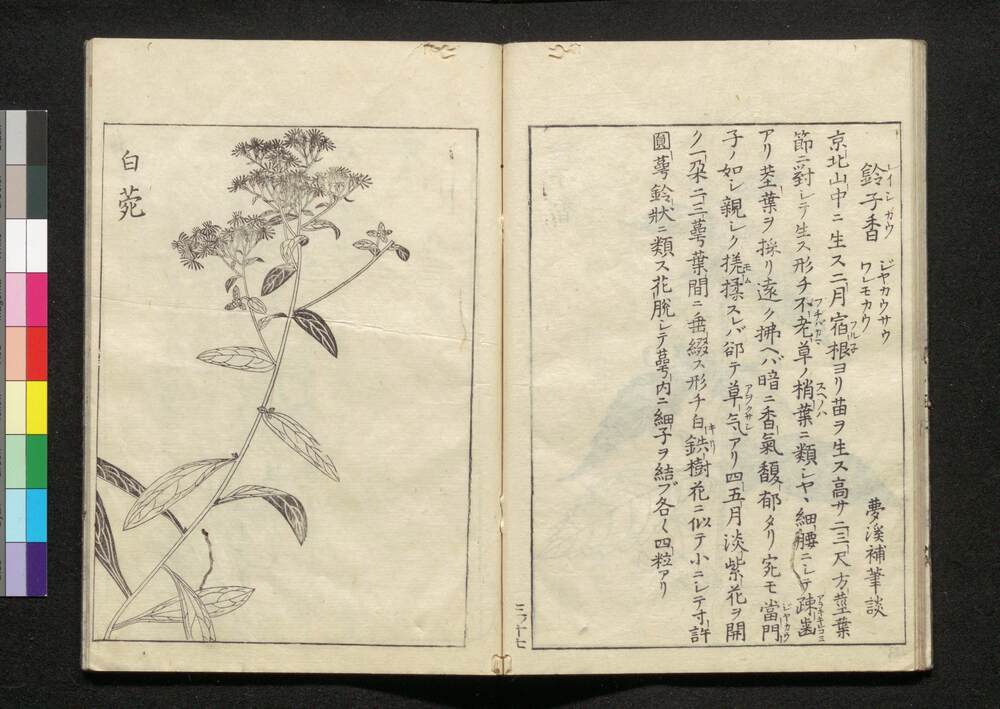 鈴子香 レイシカウ ジヤカウサウ ワレモカウ 夢溪補筆談
京北山中ニ生ス二月宿根ヨリ苗ヲ生ス高サ二三尺方莖葉
節ニ對シテ生ス形チ不老草ノ梢葉ニ類シヤヽ細腰ニシテ疎歯
アリ莖葉ヲ採リ遠ク拂ヘバ暗ニ香氣馥郁タリ宛モ當門
子ノ如シ親シク搓揉スレバ郤テ草気アリ四五月淡紫花ヲ開
ク一朶ニ三萼葉間ニ垂綴ス形チ白鉄樹花ニ似テ小ニシテ寸許
圓萼鈴状ニ類ス花脱シテ萼内ニ細子ヲ結ブ各〱四粒アリ
三ノ十七
白菀